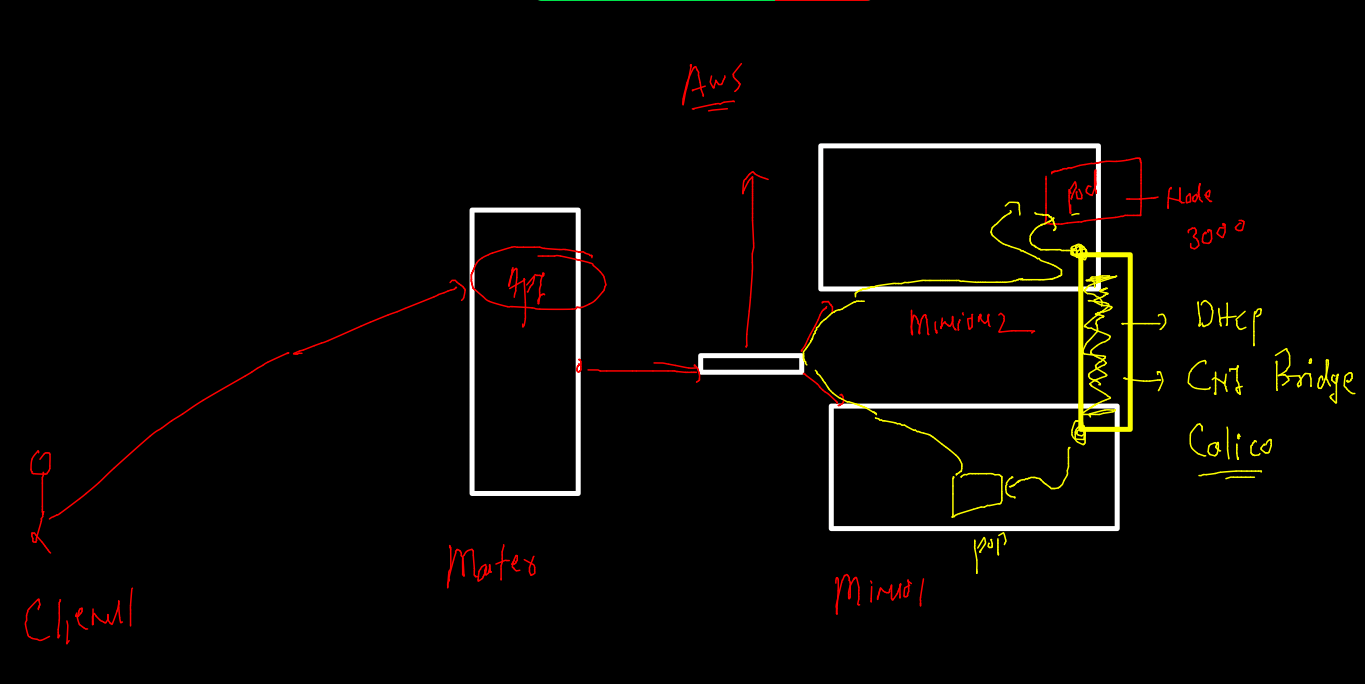 Aws
pod
Node
3000
Api
Minion2
DHCP
CNI Bridge
Calico
pop
Master
Minion1
Client1